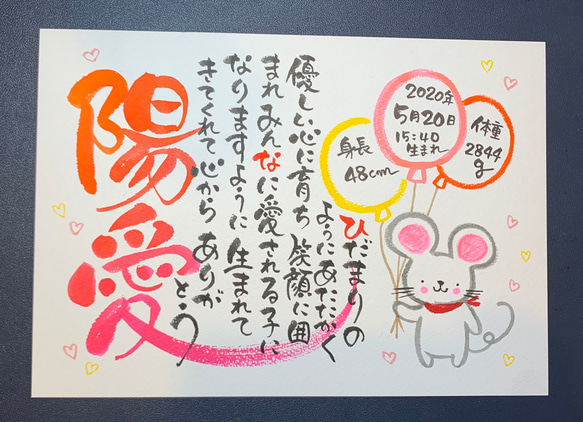 陽愛
ひだまりの
ようにあたたかく
優しい心に育ち 笑顔に囲
まれ みんなに愛される子に
なりますように 生まれて
きてくれて 心から ありが
とう
身長
48cm
2020年
5月20日
15:40
生まれ
体重
2844
g